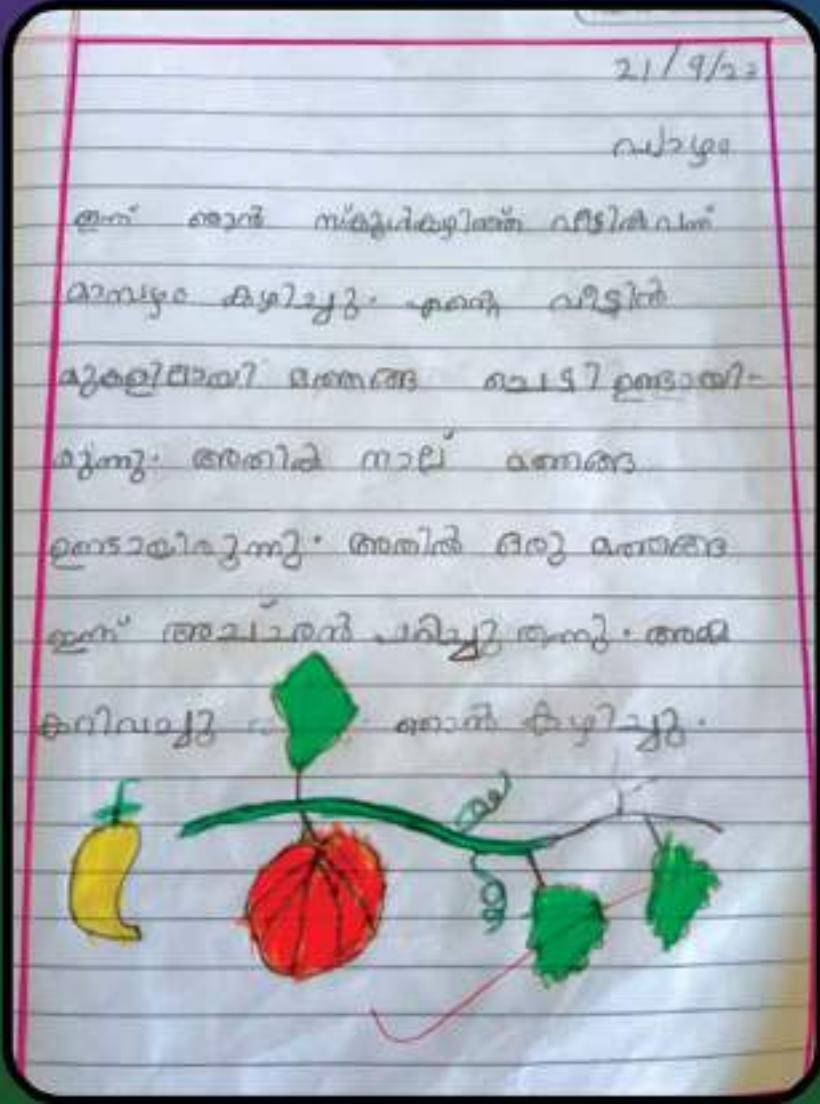 21/9/23
വ്യാഴം
ഇന്ന് ഞാൻ സ്കൂൾകഴിഞ്ഞ് വീട്ടിൽവന്ന്
മാമ്പഴം കഴിച്ചു. എന്റെ വീട്ടിൽ
മുകളിലായി മത്തങ്ങ ചെടി ഉണ്ടായി-
രുന്നു. അതിൽ നാല് മത്തങ്ങ
ഉണ്ടായിരുന്നു. അതിൽ ഒരു മത്തങ്ങ
ഇന്ന് അച്ചാച്ചൻ പറിച്ചു തന്നു. അമ്മ
കറിവച്ചു ഞാൻ കഴിച്ചു.